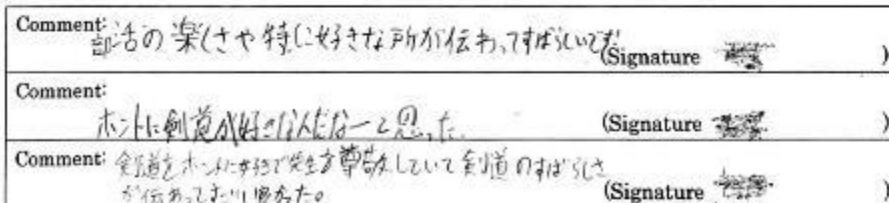 Comment:
部活の楽しさや特に好きな所が伝わってすばらしいです!
(Signature )
Comment:
ホントに剣道が好きなんだなーと思った。
(Signature )
Comment:
剣道をホントに好きで先生を尊敬していて剣道のすばらしさ
が伝わってすごい良かった。
(Signature )